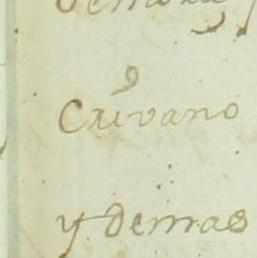 Crivano
y demas